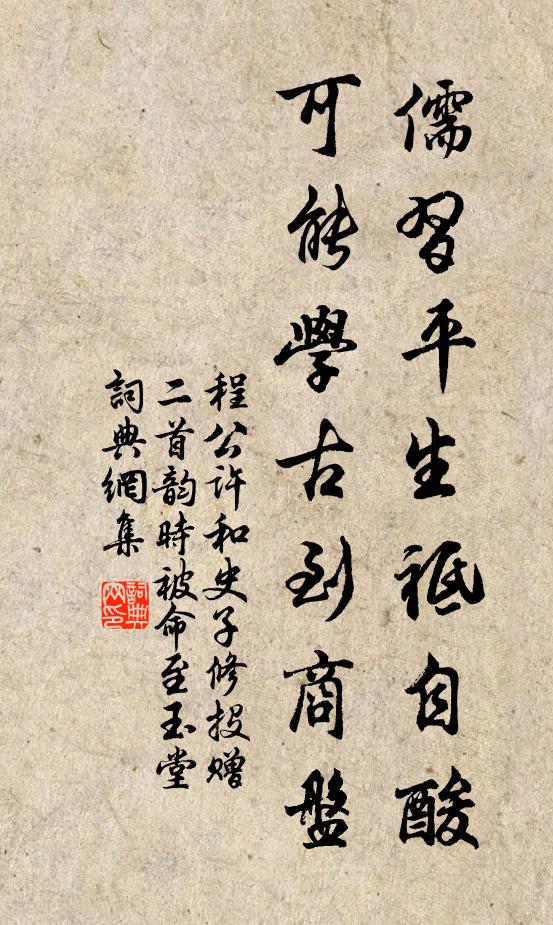 儒習平生祗自酸
可能學古到商盤
程公許和史子修投贈
二首韵時被命至玉堂
詞典網集
詞典网印